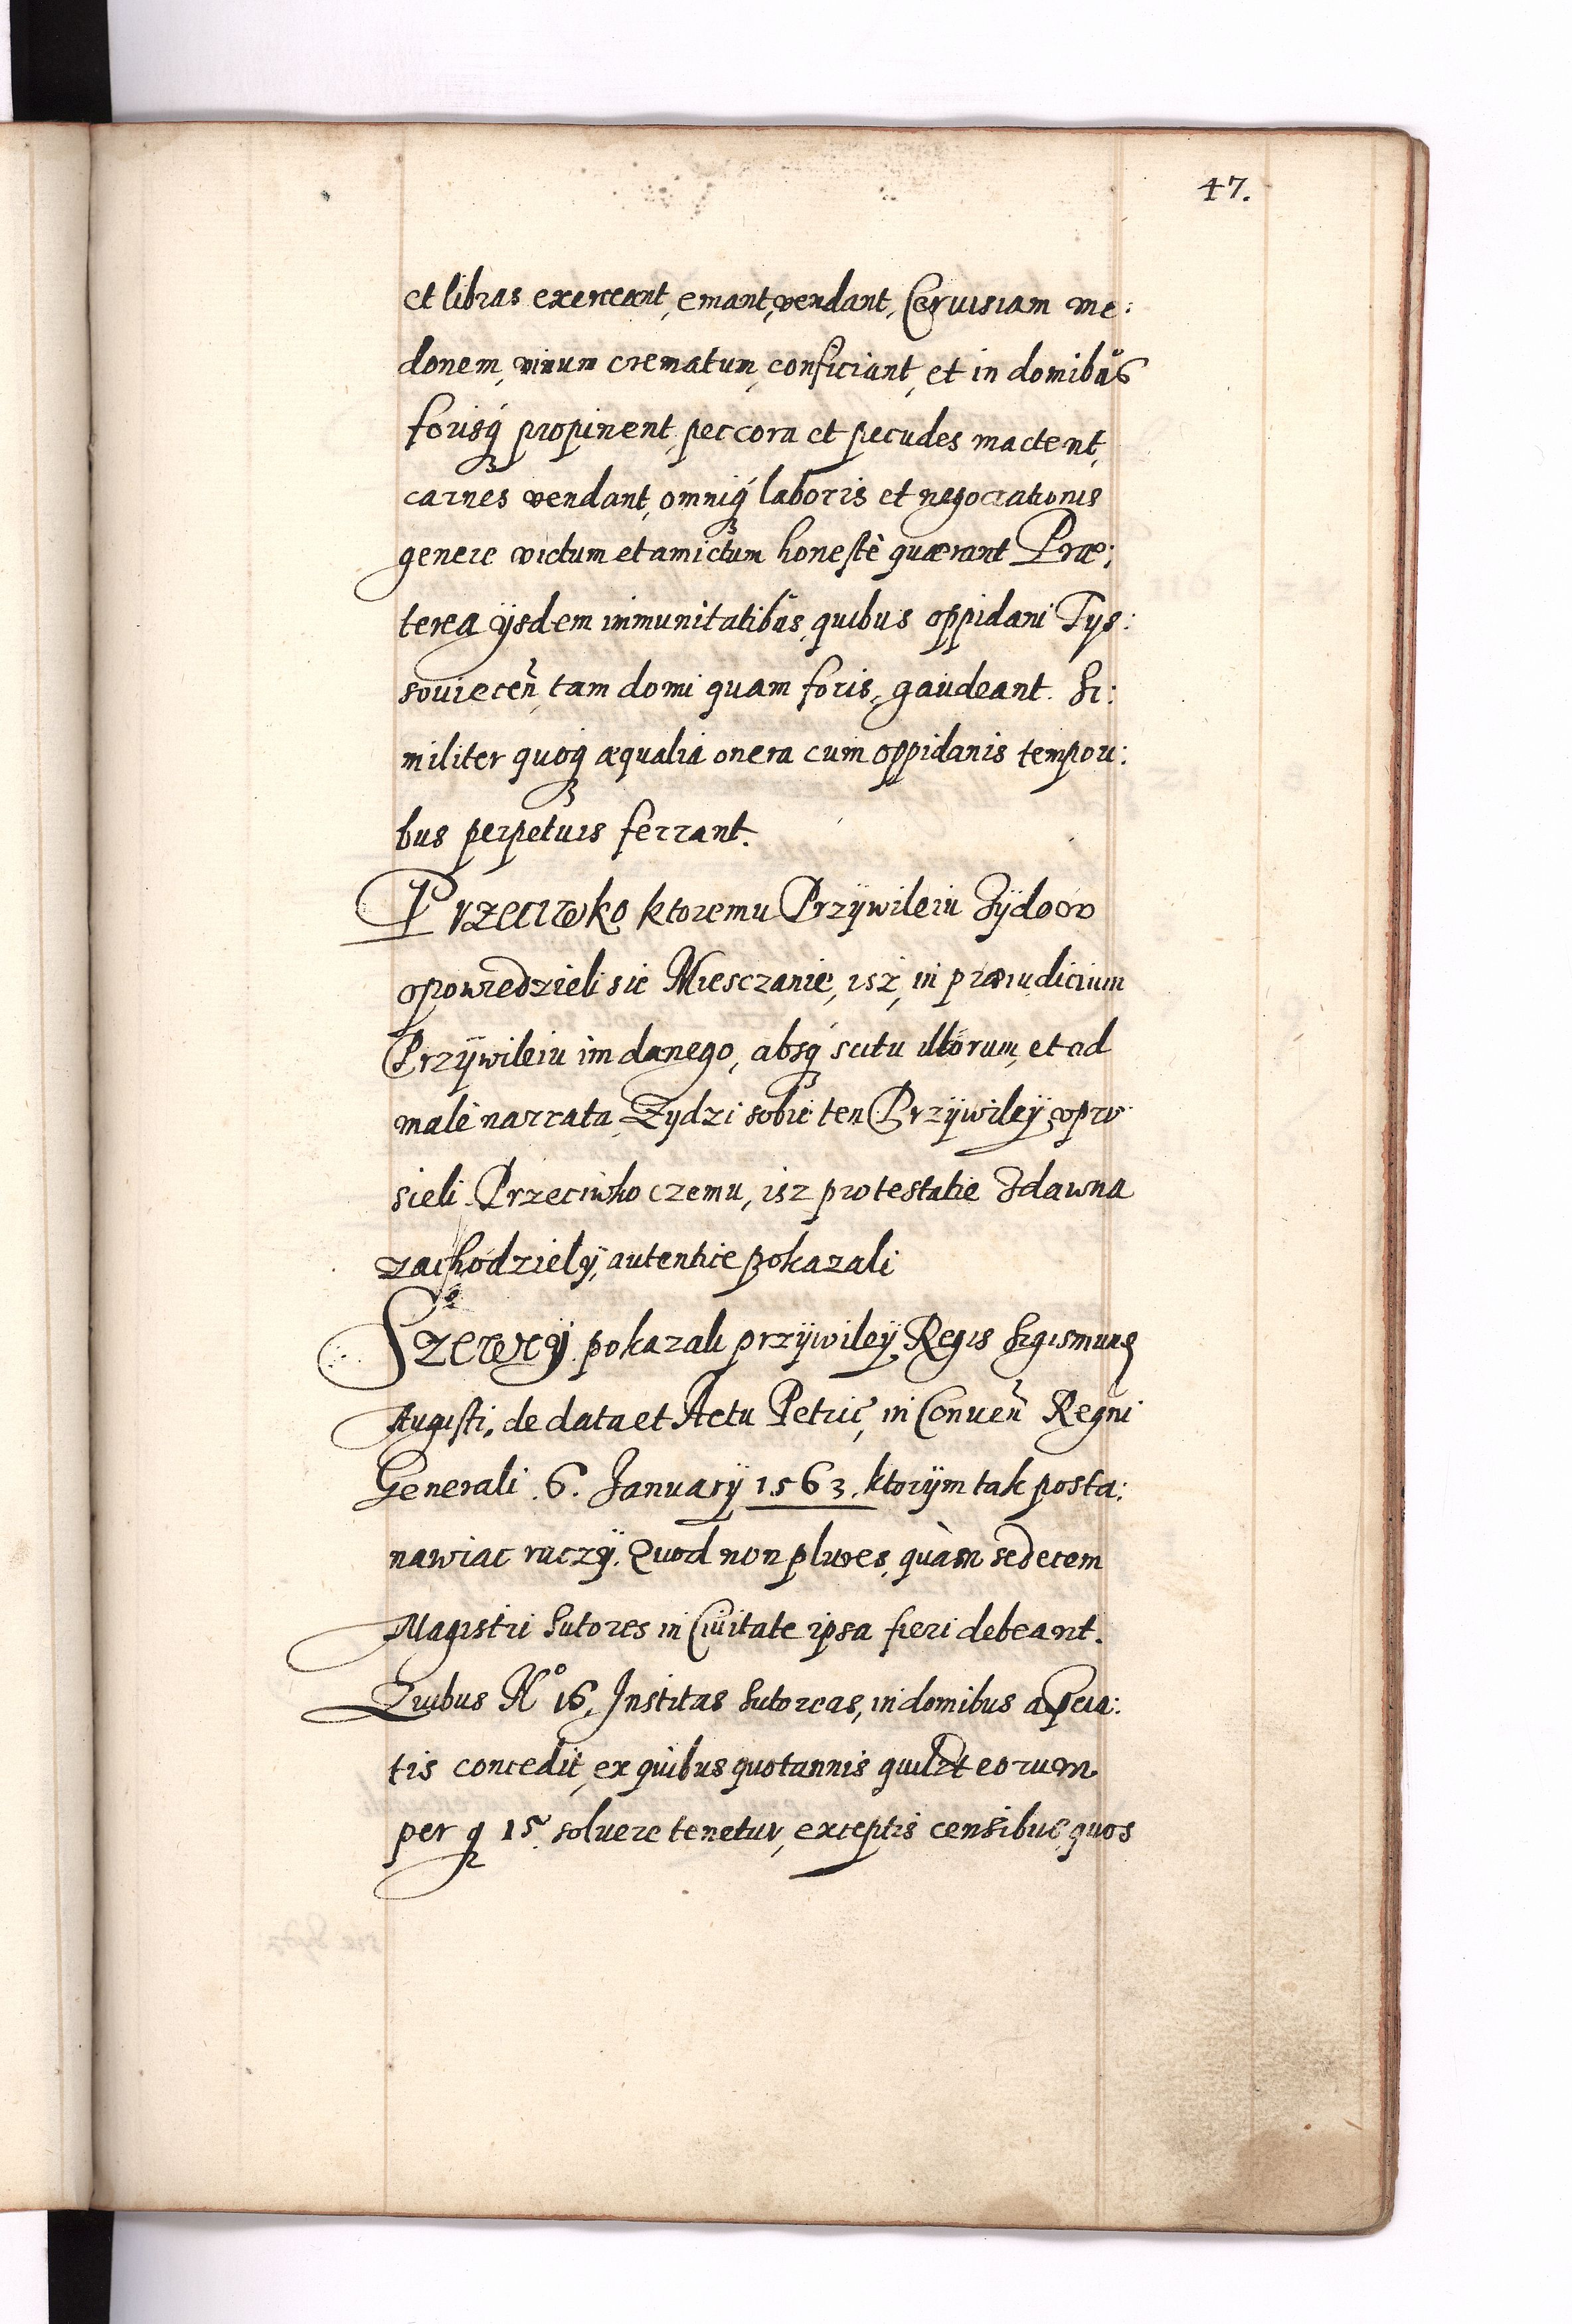 47.
et libras exerceant, emant, vendant, Ceruisiam me:
donem, vinum crematum, conficiant, et in domibus
forisq́ propinent, peccora et pecudes mactent,
carnes vendant, omniq́ laboris et negociationis
genere victum et amictum honestè quærant Præ:
terea ijsdem immunitatibus, quibus oppidani Tys:
souiecen̄, tam domi quam foris, gaudeant. Si:
militer quoq́ æqualia onera cum oppidanis tempori:
bus perpetuis ferrant.
Przeciwko ktoremu Przÿwileiu Zÿdow
opowiedzieli sie Miesczanie, isż, in præiudicium
Przÿwileiu im danego, absq́ scitu illorum, et ad
malè narrata, Zydzi sobie ten Przÿwileÿ vpro
sieli. Przeciwko czemu, isz protestatie zdawna
zachodziełÿ, autentice pokazali
Szewcÿ pokazali przÿwileÿ Regis Sigismund
Augusti, de data et Actu Petric, in Conuen̄ Regni
Generali .6. Januarÿ 1563. ktorÿm tak posta:
nawiac raczÿ. Quod non plures, quàm sedecem
Magistri Sutores in Ciuitate ipsa fieri debeant.
Quibus No 16, Institas Sutoreas, in domibus aspeia:
tis concedit, ex quibus quotannis quilzt eorum
per g 15. soluere tenetur, exceptis censibus, quos